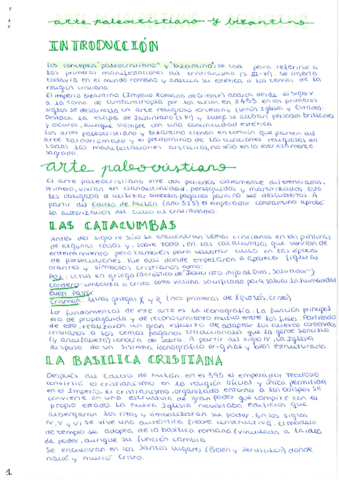 arte paleocristiano y bizantino
INTRODUCCIÓN
Los conceptos "paleocristiano" y "bizantino" se usa para referirse a
las primeras manifestaciones del cristianismo (s. III-VI). Se inserta
todavía en el mundo romano y adecua su estética a los temas de la
religión cristiana.
El imperio bizantino (Imperio Romano de Oriente) abarca desde el siglo V
a la toma de Constantinopla por los turcos en 1453 en los primeros
siglos se desarrolla un arte religioso cortesano (unión Iglesia y Estado).
Destaca la etapa de Justiniano (s. VI) y luego se alternan períodos brillantes
y oscuros, aunque siempre con una continuidad estética.
Los artes paleocristiano y bizantino tienen en común que parten del
arte tardorromano y el predominio de las creaciones religiosas en
todas las manifestaciones artísticas, no sólo en lo estrictamente
sagrado.
arte paleocristiano
El arte paleocristiano vive dos periodos claramente diferenciados.
Primero, vivían en clandestinidad, perseguidos y martirizados, esto
les obligaba a utilizar símbolos paganos para no ser descubiertos. A
partir del Edicto de Milán (año 313) el emperador Constantino aprobó
la autorización del culto al cristianismo.
LAS CATACUMBAS
Antes del siglo IV solo se encuentran temas cristianos en las pinturas
de algunas casas y, sobre todo, en las catacumbas, que servían de
enterramiento pero también para celebrar culto en las épocas
de persecuciones. Fue aquí donde empezaron a aparecer figuras
orantes y símbolos cristianos como:
Pez: ictus en griego (acróstico de "Jesucristo Hijo de Dios, Salvador")
Cordero: simboliza a Cristo como víctima sacrificada para salvar la humanidad
Buen Pastor
Crismón: letras griegas X y P (las primeras de Χριστός, Cristo)
Lo fundamental de este arte es la iconografía. La función principal
era de propaganda y de reconocimiento mutuo entre los fieles. Partiendo
de eso, realizaron un gran esfuerzo de adaptar los nuevos contenidos
cristianos a los temas paganos tradicionales que la gente sencilla
(y analfabeta) conocía de sobra. A partir del siglo IV, la Iglesia
dispuso de un sistema iconográfico original y bien estructurado.
LA BASÍLICA CRISTIANA
Después del Edicto de Milán, en el 395 el emperador Teodosio
convirtió el cristianismo en la religión oficial y única permitida
en el Imperio. El cristianismo, organizado entorno a los obispos se
convierte en una estructura de gran poder que compite con el
propio estado. La nueva Iglesia necesitaba edificios que
albergaran los ritos y simbolizaran su poder. En los siglos
IV, V y VI se vive una auténtica fiebre constructiva. El modelo
de templo se adopta de la basílica romana (vinculada a la idea
de poder, aunque su función cambia.
Se encuentran en los Santos lugares (Belén y Jerusalén) donde
nació y murió Cristo.
1